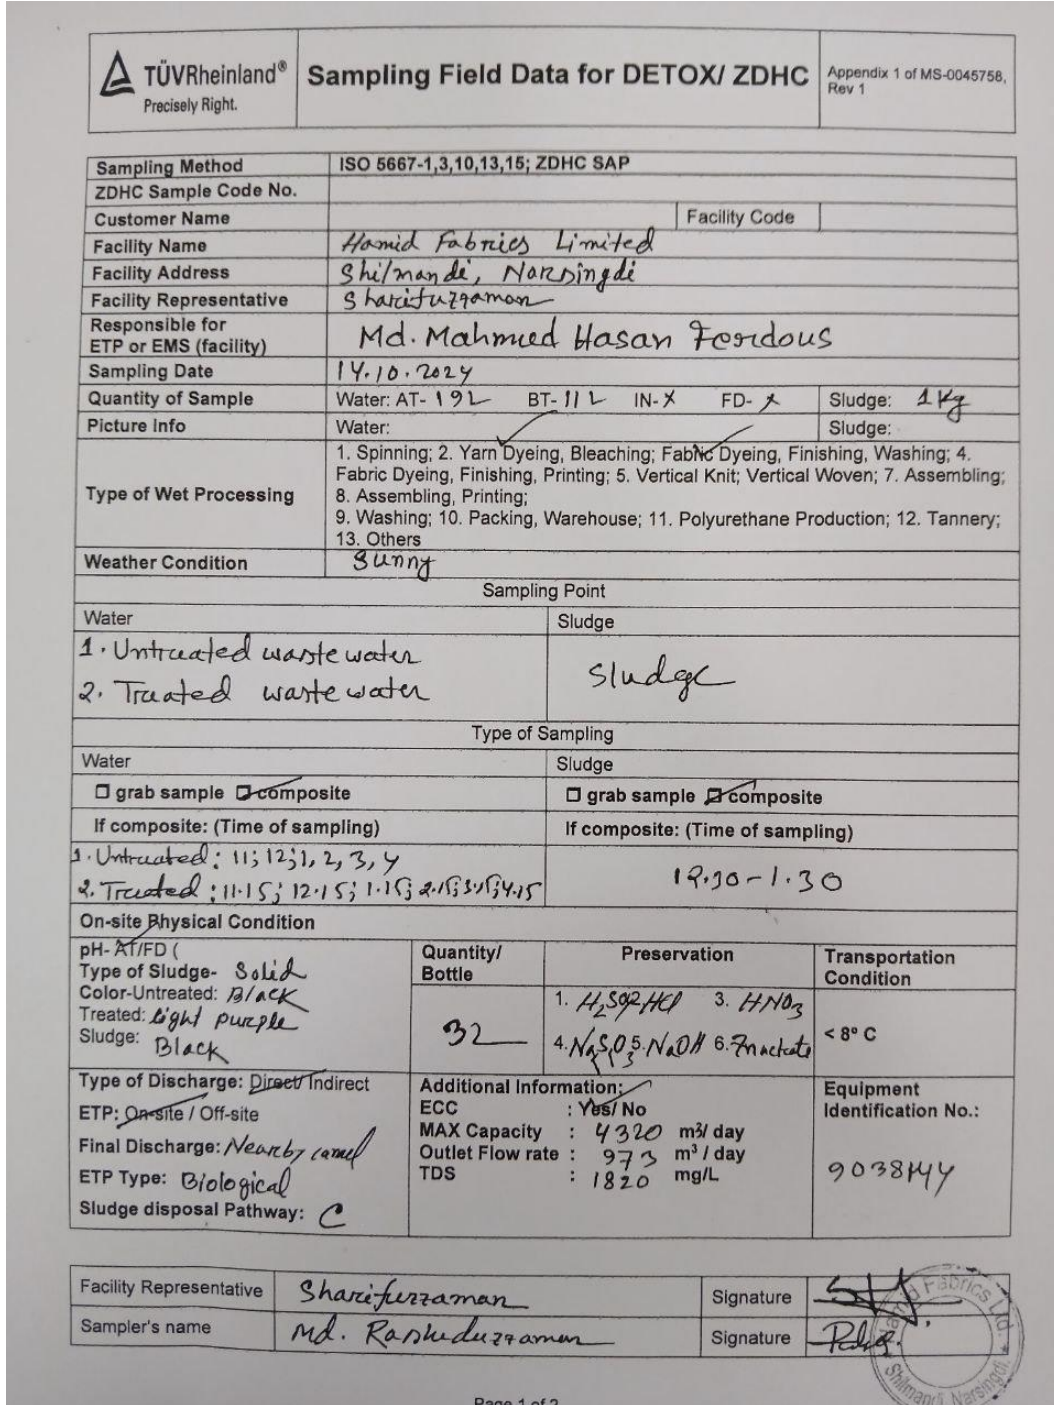 TÜVRheinland®
Precisely Right.
Sampling Field Data for DETOX/ ZDHC
Appendix 1 of MS-0045758,
Rev 1
Sampling Method ISO 5667-1,3,10,13,15; ZDHC SAP
ZDHC Sample Code No.
Customer Name Facility Code
Facility Name Hamid Fabrics Limited
Facility Address Shilmandi, Narsingdi
Facility Representative Sharifuzzaman
Responsible for
ETP or EMS (facility) Md. Mahmud Hasan Ferdous
Sampling Date 14.10.2024
Quantity of Sample Water: AT- 19L BT- 11L IN-X FD-X Sludge: 1Kg
Picture Info Water: Sludge:
Type of Wet Processing
1. Spinning; 2. Yarn Dyeing, Bleaching; Fabric Dyeing, Finishing, Washing; 4.
Fabric Dyeing, Finishing, Printing; 5. Vertical Knit; Vertical Woven; 7. Assembling;
8. Assembling, Printing;
9. Washing; 10. Packing, Warehouse; 11. Polyurethane Production; 12. Tannery;
13. Others
Weather Condition Sunny
Sampling Point
Water Sludge
1. Untreated waste water
2. Treated waste water
Sludge
Type of Sampling
Water Sludge
grab sample composite grab sample composite
If composite: (Time of sampling) If composite: (Time of sampling)
1. Untreated: 11; 12; 1, 2, 3, 4
2. Treated: 11.15; 12.15; 1.15; 2.15; 3.15; 4.15
12.30-1.30
On-site Physical Condition
pH- AT/FD (
Type of Sludge- Solid
Color-Untreated: Black
Treated: light purple
Sludge: Black
Quantity/
Bottle
32
Preservation
1. H2SO4 2. HCl 3. HNO3
4. Na2S2O3 5. NaOH 6. Zn actate
Transportation
Condition
< 8° C
Type of Discharge: Direct/ Indirect
ETP: On-site / Off-site
Final Discharge: Nearby
ETP Type: Biological
Sludge disposal Pathway: C
Additional Information:
ECC : Yes/ No
MAX Capacity : 4320 m3/ day
Outlet Flow rate : 973 m3 / day
TDS : 1820 mg/L
Equipment
Identification No.:
9038144
Facility Representative Sharifuzzaman Signature
Sampler's name Md. Rasheduzzaman Signature
Hamid Fabrics Ltd.
Shilmandi, Narsingdi.
Page 1 of 2